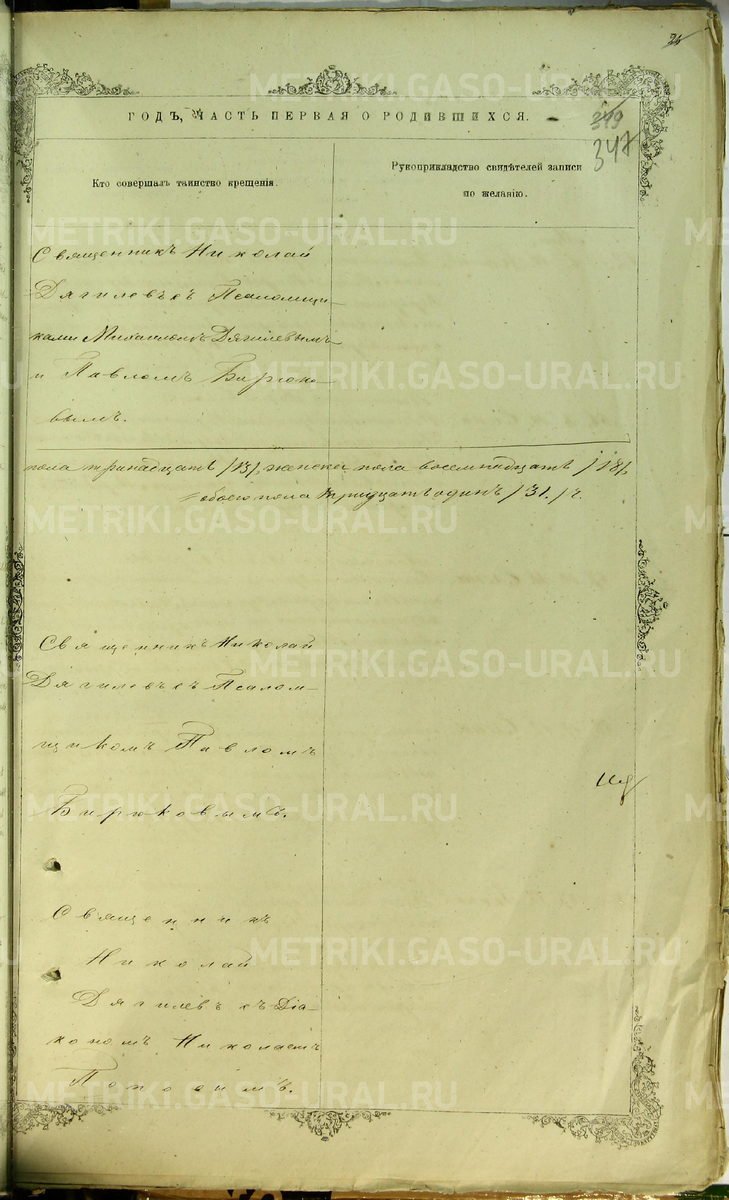 ГОДЪ, ЧАСТЬ ПЕРВАЯ О РОДИВШИХСЯ.
349
347
Кто совершалъ таинство крещенія.
Рукоприкладство свидѣтелей записи
по желанію.
Священникъ Николай
Дягилевъ съ Псаломщи-
ками Михаиломъ Дягилевымъ
и Павломъ Бирюко-
вымъ.
пола тринадцать /13/, женска пола восемнадцать /18/,
обоего пола тридцать одинъ /31./
Священникъ Николай
Дягилевъ съ Псалом-
щикомъ Павломъ
Бирюковымъ.
Священникъ
Николай
Дягилевъ съ Діа-
кономъ Николаемъ
Поповымъ.
METRIKI.GASO-URAL.RU